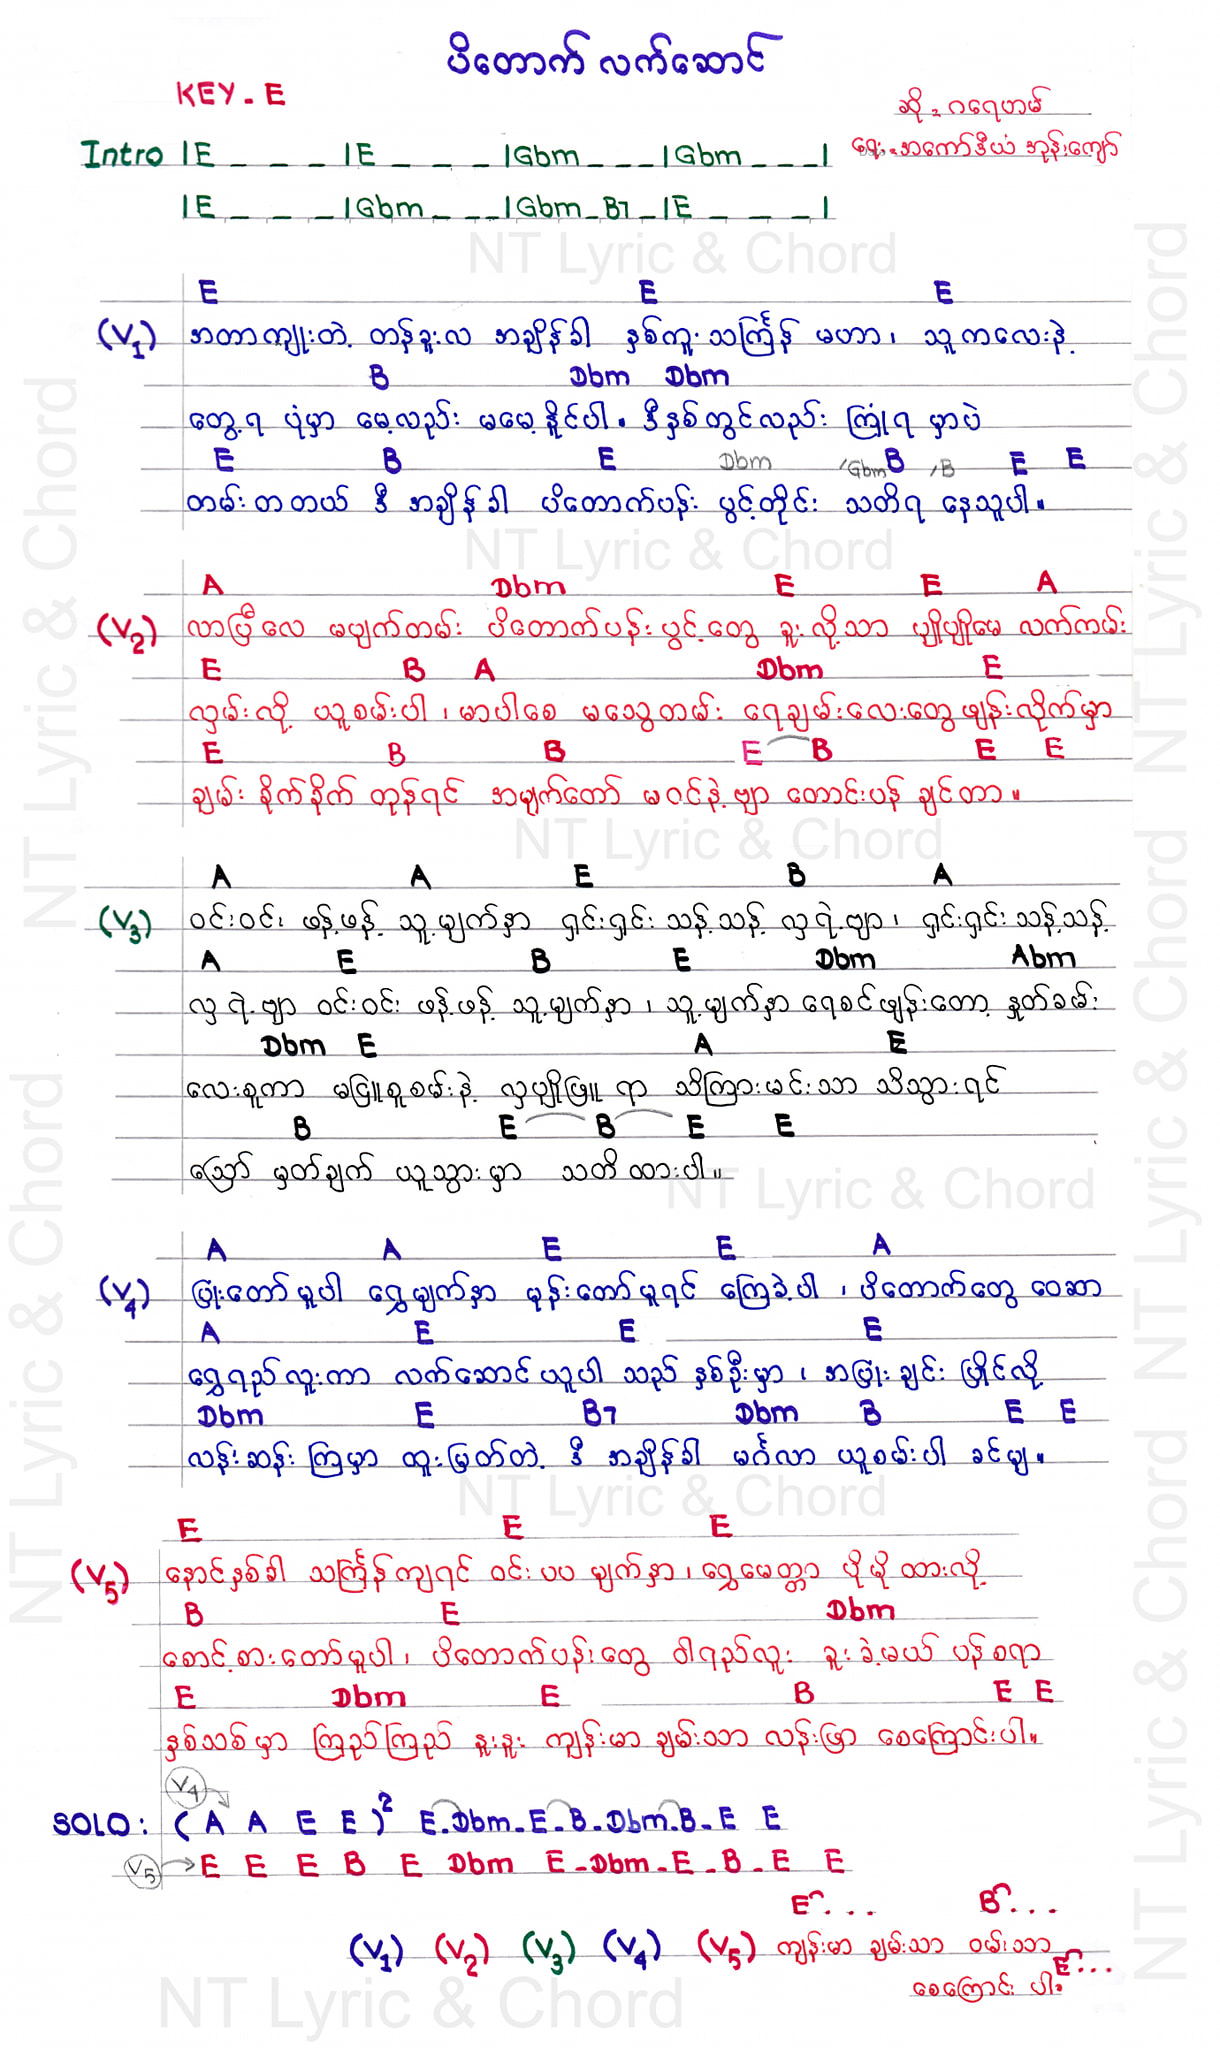 ပိတောက် လက်ဆောင်
KEY - E
ဆို = ဂရေဟမ်
ရေး = အကော်ဒီယံ အုန်းကျော်
Intro |E _ _ _ |E _ _ _ |Gbm _ _ _ |Gbm _ _ _ |
|E _ _ _ |Gbm _ _ _ |Gbm _ B7 _ |E _ _ _ |
E E E
(V1) အတာကျူးတဲ့ တန်ခူးလ အချိန်ခါ နှစ်ကူးသင်္ကြန် မဟာ၊ သူကလေးနဲ့
B Dbm Dbm
တွေ့ရ ပုံမှာ မေ့လည်း မမေ့နိူင်ပါ။ ဒီနှစ်တွင်လည်း ကြုံရ မှာပဲ
E B E Dbm /Gbm B /B E E
တမ်းတတယ် ဒီ အချိန်ခါ ပိတောက်ပန်း ပွင့်တိုင်း သတိရ နေသူပါ။
A Dbm E E A
(V2) လာပြီလေ မပျက်တမ်း ပိတောက်ပန်းပွင့်တွေ ခူးလို့သာ ပျိုပျိုမေ လက်ကမ်း
E B A Dbm E
လှမ်းလို့ ယူစမ်းပါ ၊ မာပါစေ မသွေတမ်း ရေချမ်းလေးတွေ ဖျန်းလိုက်မှာ
E B B E B E E
ချမ်း ခိုက်ခိုက် တုန်ရင် အမျက်တော် မဝင်နဲ့ ဗျာ တောင်းပန် ချင်တာ။
A A E B A
(V3) ဝင်းဝင်း ဖန့်ဖန့် သူ့မျက်နှာ ရှင်းရှင်း သန့်သန့် လှရဲ့ဗျာ၊ ရှင်းရှင်း သန့်သန့်
A E B E Dbm Abm
လှရဲ့ဗျာ ဝင်းဝင်း ဖန့်ဖန့် သူ့မျက်နှာ ၊ သူ့မျက်နှာ ရေစင်ဖျန်းတော့ နှုတ်ခမ်း
Dbm E A E
လေးစူကာ မငြူစူစမ်းနဲ့ လှပျိုဖြူ ရာ သိကြားမင်းသာ သိသွားရင်
B E B E E
သြော် မှတ်ချက် ယူသွားမှာ သတိ ထားပါ။
A A E E A
(V4) ပြုံးတော်မူပါ ရွှေမျက်နှာ မုန်းတော်မူရင် ကြေခဲ့ပါ ၊ ပိတောက်တွေ ဝေဆာ
A E E E
ရွှေရည်လူးကာ လက်ဆောင်ယူပါ သည် နှစ်ဦးမှာ ၊ အပြုံးချင်း ပြိုင်လို့
Dbm E B7 Dbm B E E
လန်းဆန်းကြမှာ ထူးမြတ်တဲ့ ဒီ အချိန်ခါ မင်္ဂလာ ယူစမ်းပါ ခင်မျ။
E E E
(V5) နောင်နှစ်ခါ သင်္ကြန်ကျရင် ဝင်းပပ မျက်နှာ၊ ရွှေမေတ္တာ ပိုမို ထားလို့
B E Dbm
စောင့်စားတော်မူပါ၊ ပိတောက်ပန်းတွေ ဝါရည်လူး ခူးခဲ့မယ် ပန်စရာ
E Dbm E B E E
နှစ်သစ်မှာ ကြည်ကြည်နူးနူး ကျန်းမာချမ်းသာ လန်းဖြာ စေကြောင်းပါ။
V4
SOLO : ( A A E E )² E-Dbm-E-B-Dbm-B-E E
V5 E E E B E Dbm E-Dbm-E-B-E E
E... B...
(V1) (V2) (V3) (V4) (V5) ကျန်းမာ ချမ်းသာ ဝမ်းသာ
E...
စေကြောင်း ပါ။
NT Lyric & Chord
NT Lyric & Chord
NT Lyric & Chord
NT Lyric & Chord
NT Lyric & Chord
NT Lyric & Chord
NT Lyric & Chord
NT Lyric & Chord
NT Lyric & Chord
NT Lyric & Chord
NT Lyric & Chord
NT Lyric & Chord